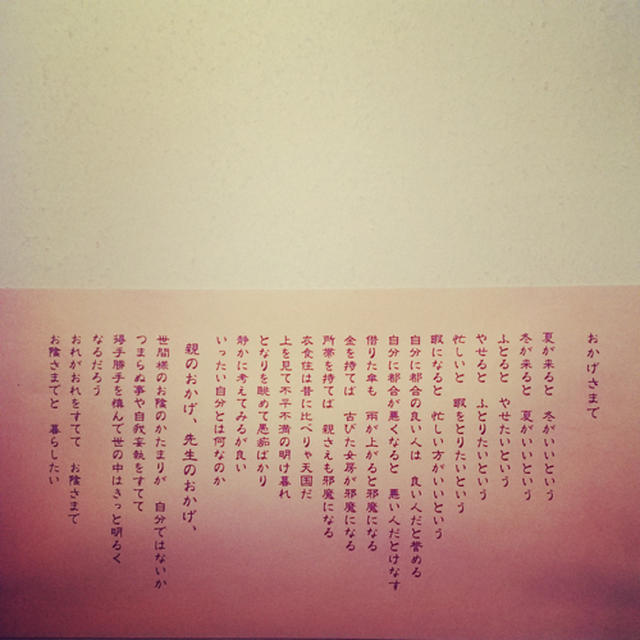 おかげさまで
夏が来ると　冬がいいという
冬が来ると　夏がいいという
ふとると　やせたいという
やせると　ふとりたいという
忙しいと　暇をとりたいという
暇になると　忙しい方がいいという
自分に都合の良い人は　良い人だと誉める
自分に都合が悪くなると　悪い人だとけなす
借りた傘も　雨が上がると邪魔になる
金を持てば　古びた女房が邪魔になる
所帯を持てば　親さえも邪魔になる
衣食住は昔に比べりゃ天国だ
上を見て不平不満の明け暮れ
となりを眺めて愚痴ばかり
静かに考えてみるが良い
いったい自分とは何なのか
親のおかげ、先生のおかげ、
世間様のお陰のかたまりが　自分ではないか
つまらぬ事や自我妄執をすてて
得手勝手を慎んで世の中はきっと明るく
なるだろう
おれがおれをすてて　お陰さまで
お陰さまでと　暮らしたい